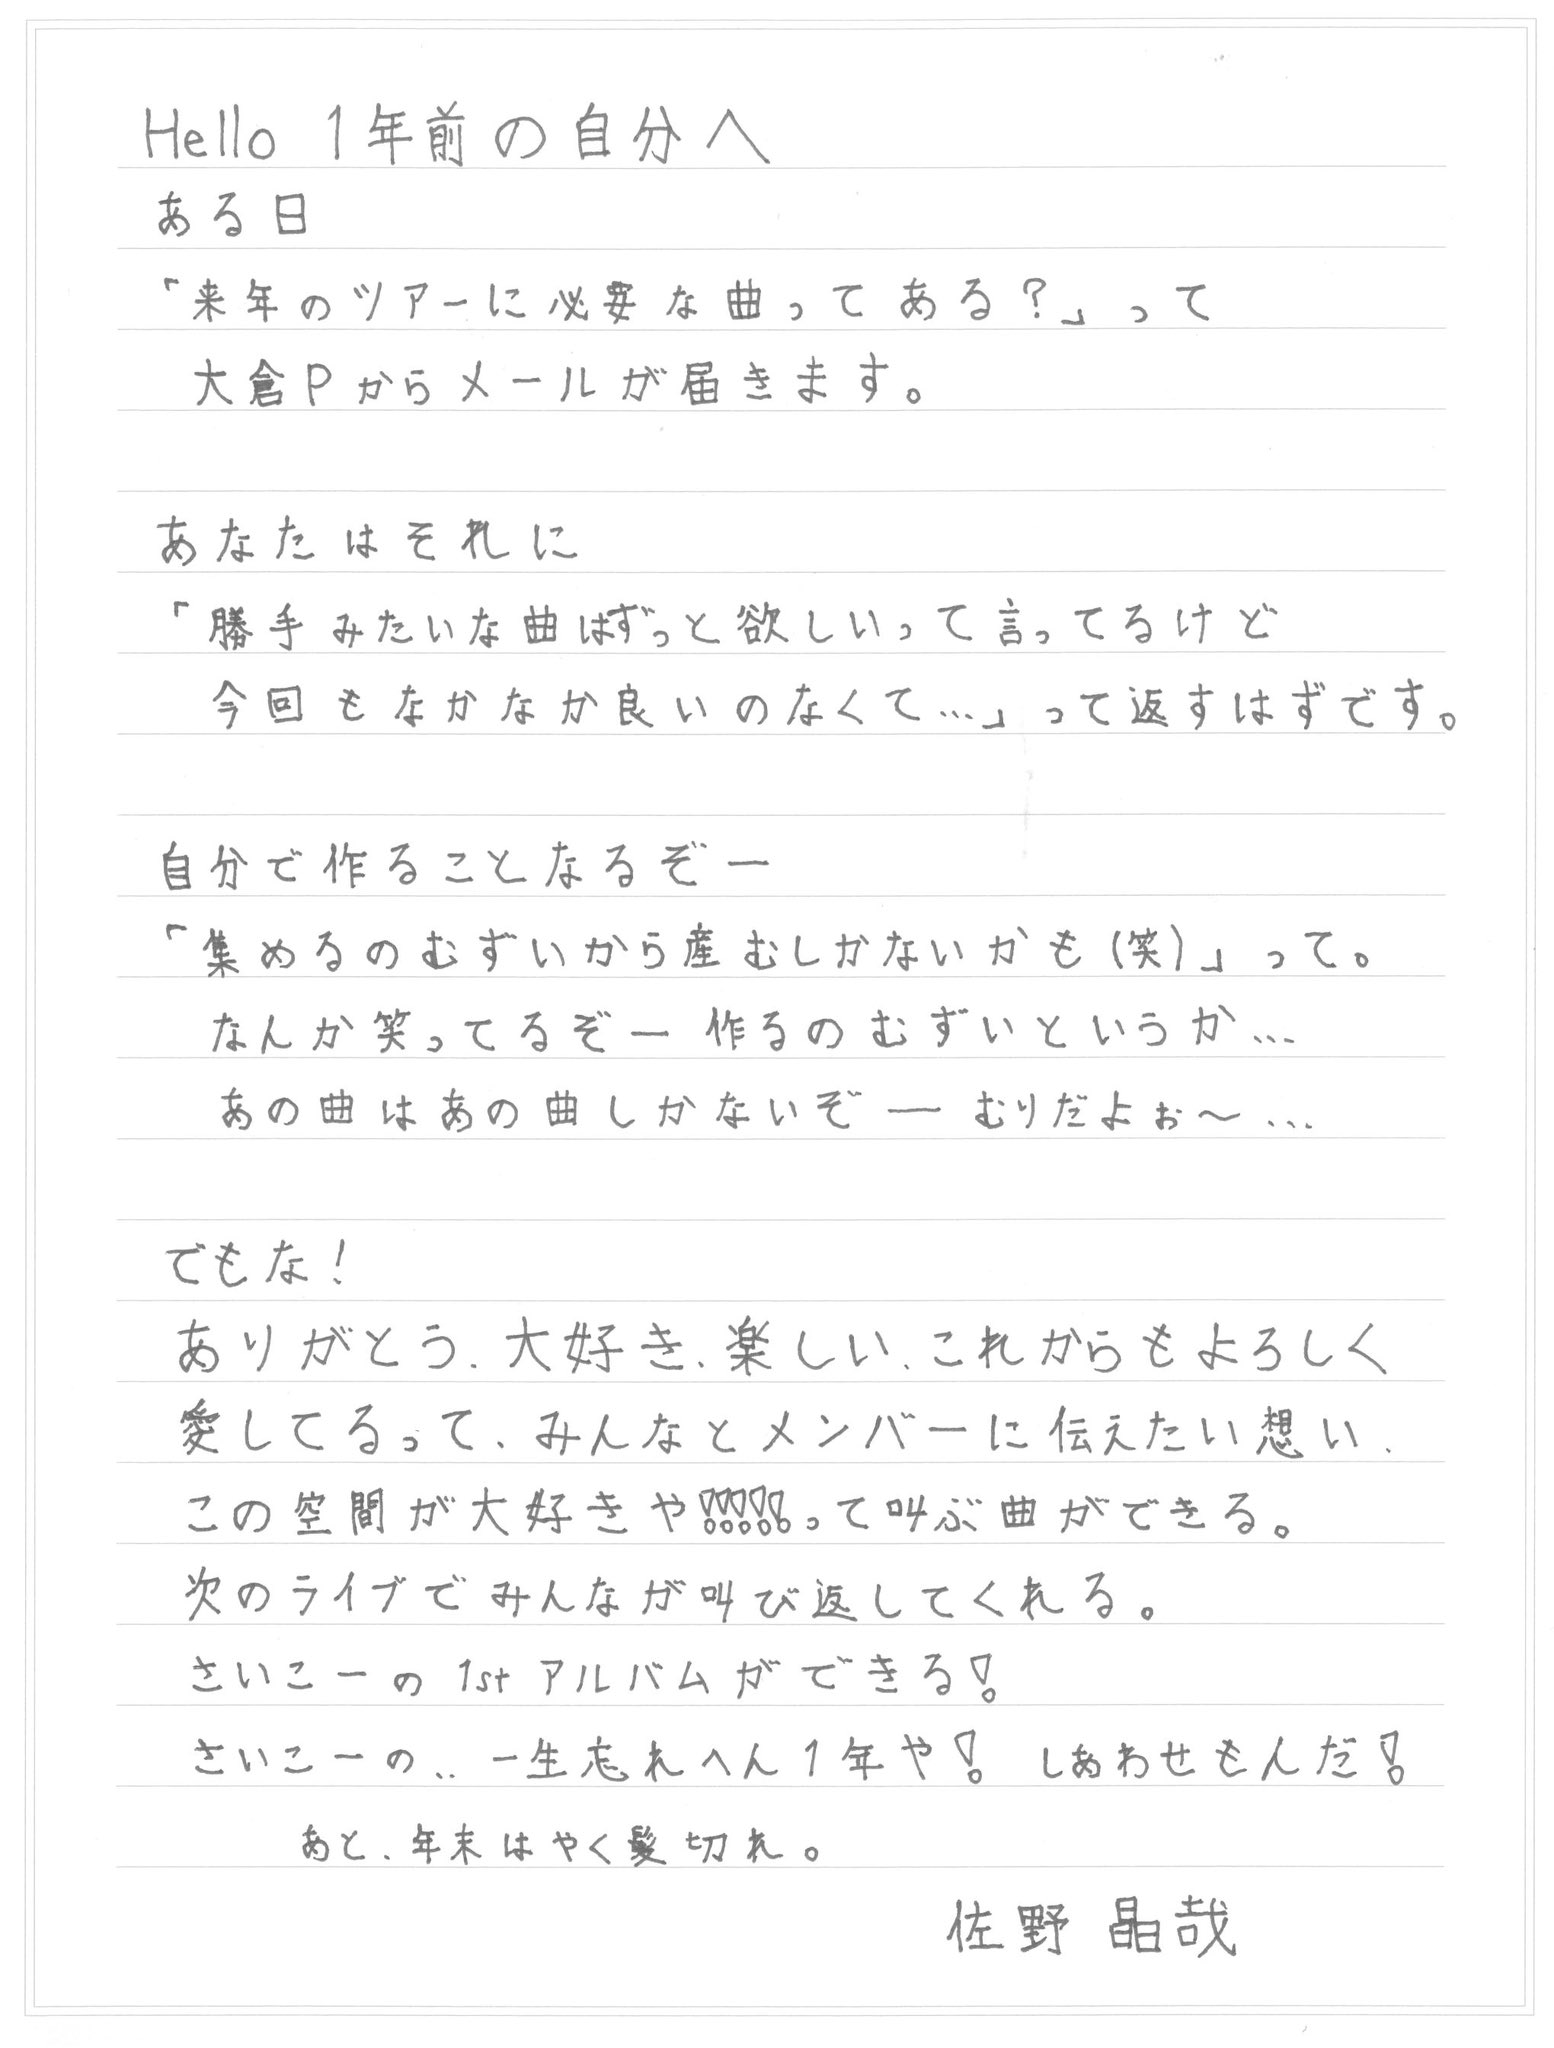 Hello 1年前の自分へ
ある日
「来年のツアーに必要な曲ってある?」って
大倉Pからメールが届きます。
あなたはそれに
「勝手みたいな曲はずっと欲しいって言ってるけど
今回もなかなか良いのなくて…」って返すはずです。
自分で作ることなるぞー
「集めるのむずいから産むしかないかも(笑)」って。
なんか笑ってるぞー 作るのむずいというか…
あの曲はあの曲しかないぞー むりだよぉ〜…
でもな!
ありがとう、大好き、楽しい、これからもよろしく
愛してるって、みんなとメンバーに伝えたい想い、
この空間が大好きや!!!!!って叫ぶ曲ができる。
次のライブでみんなが叫び返してくれる。
さいこーの1stアルバムができる!
さいこーの.. 一生忘れへん1年や! しあわせもんだ!
あと、年末はやく髪切れ。
佐野 晶哉